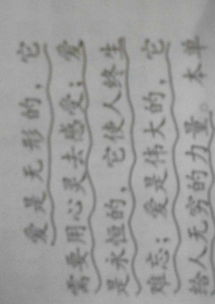 爱是无形的，它
需要用心灵去感受；爱
是永恒的，它使人终生
难忘；爱是伟大的，它
给人无穷的力量。本单